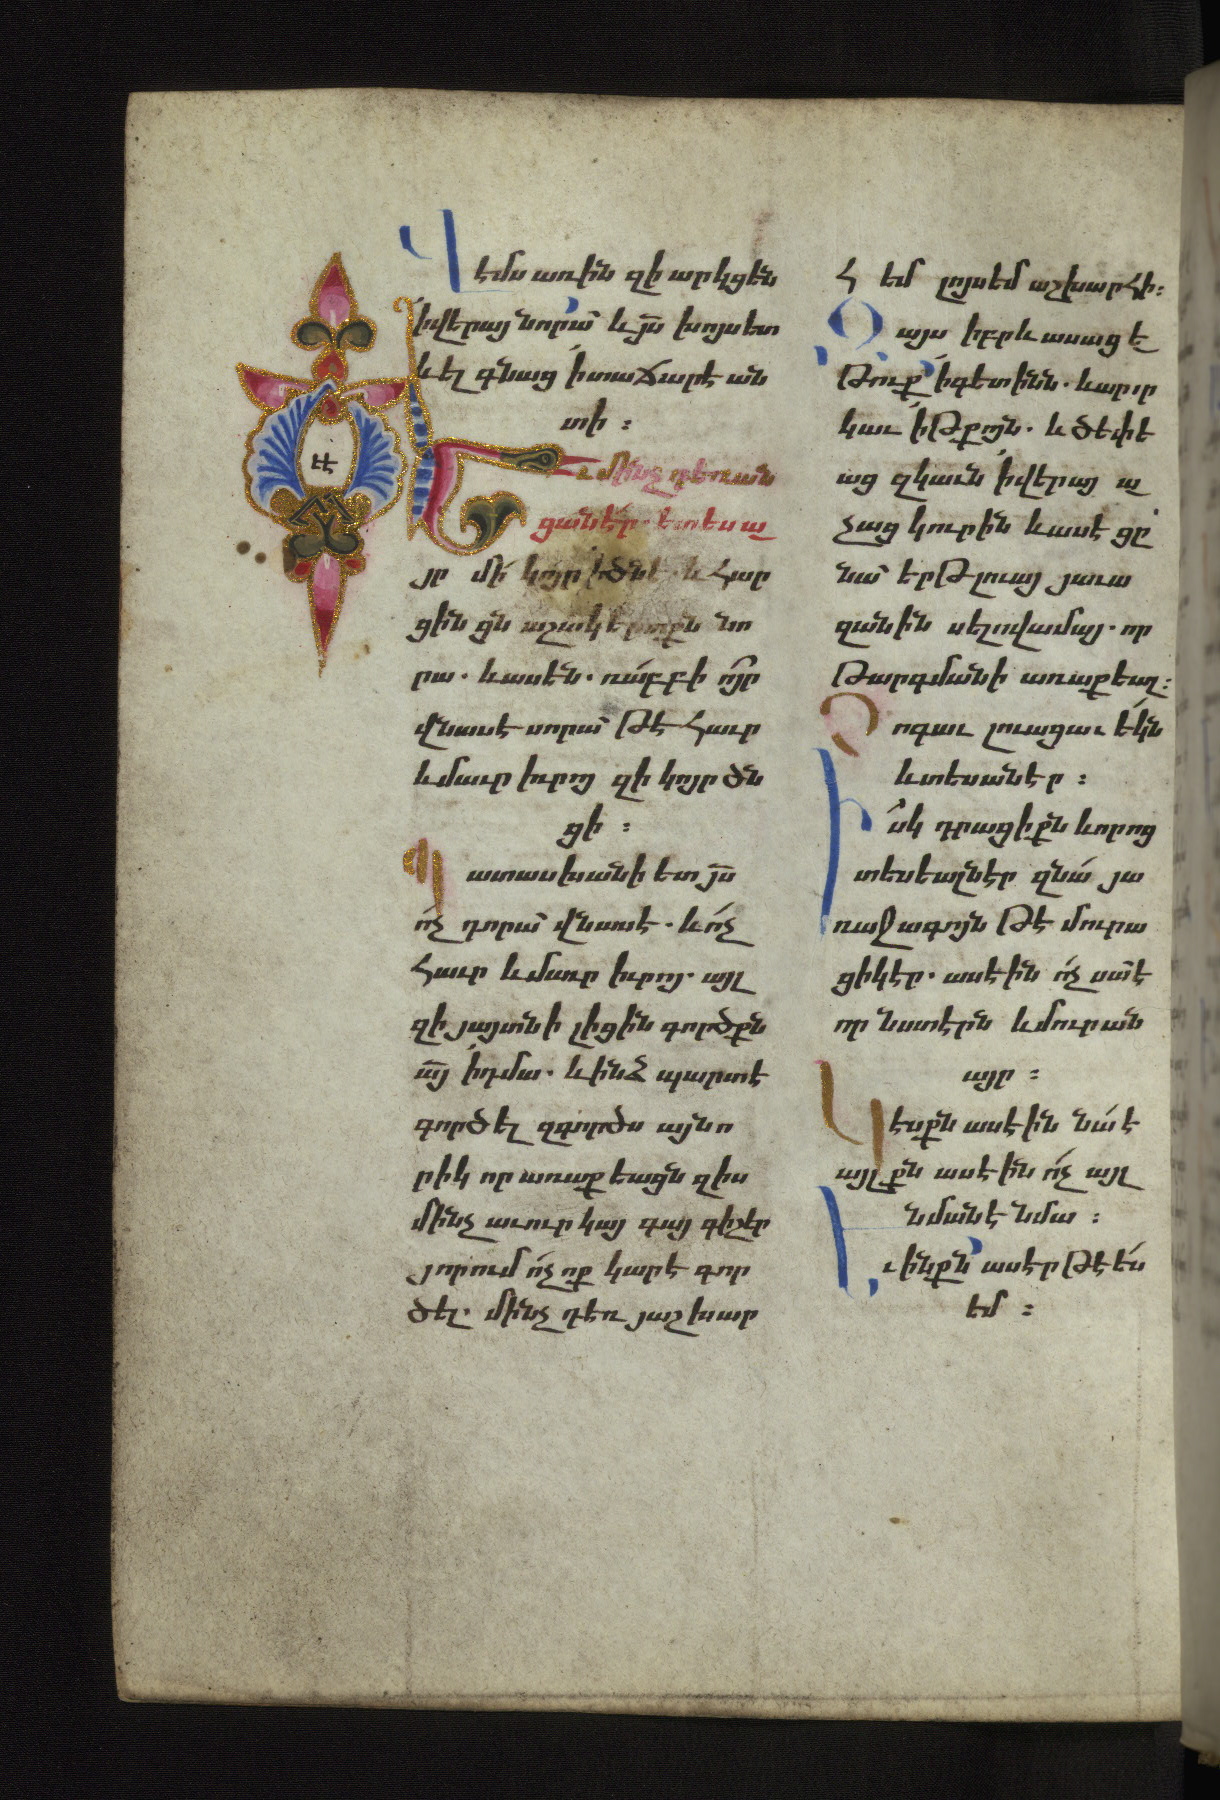 Վէմս առին զի արկցեն
ի վերայ նորա՝ և յս խոյս ետ
և ել գնաց ի տաճարէ ան
տի ։
Եւ մինչ դեռ ան
ցանէր. ետես ա
յր մի կոյր ի ծնէ. և հար
ցին ցն աշակերտքն նո
րա. և ասեն. ռաբբի ոյր
վնաս է սորա՝ թէ հաւր
և մաւր իւրոյ զի կոյր ծն
ցի ։
Պատասխանի ետ յս
ոչ դորա՝ վնաս է. և ոչ
հաւր և մաւր իւրոյ. այլ
զի յայտնի լիցին գործքն
այ ի դմա. և ինձ պարտ է
գործել զգործս այնո
րիկ որ առաքեացն զիս
մինչ աւուր կայ գայ գիշեր
յորում ոչ ոք կարէ գոր
ծել. մինչ դեռ յաշխար
հ եմ լոյս եմ աշխարհի։
Զայս իբրև ասաց ե
թուք ի գետինն. և արար
կաւ ի թքոյն. և ծեփե
աց զկաւն ի վերայ ա
չաց կուրին և ասէ ցը
նա՝ երթ լուայ յաւա
զանին սելովամայ. որ
թարգմանի առաքեալ։
Չոգաւ լուացաւ եկն
և տեսանէր ։
Իսկ դրացիքն և որոց
տեսեալ էր զնա յա
ռաջագոյն թէ մուրա
ցիկ էր. ասէին ոչ սա է
որ նստէրն և մուրան
այր ։
Կէսքն ասէին նա է
այլքն ասէին ոչ այլ
նման է նմա ։
Եւ ինքն ասէր թէ ես
եմ ։